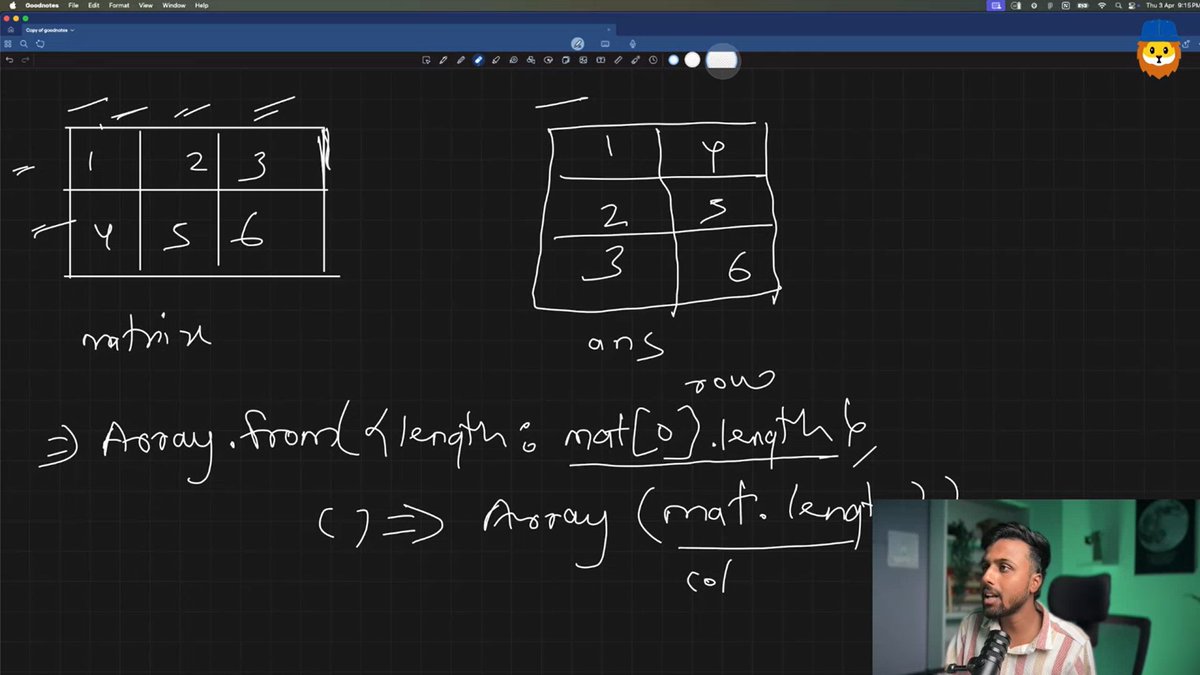 Goodnotes File Edit Format View Window Help
Thu 3 Apr 9:15PM
Copy of goodnotes
1 2 3
4 5 6
matrix
1 4
2 5
3 6
ans
row
=> Array.from({length: mat[0].length},
() => Array(mat.lengt
col